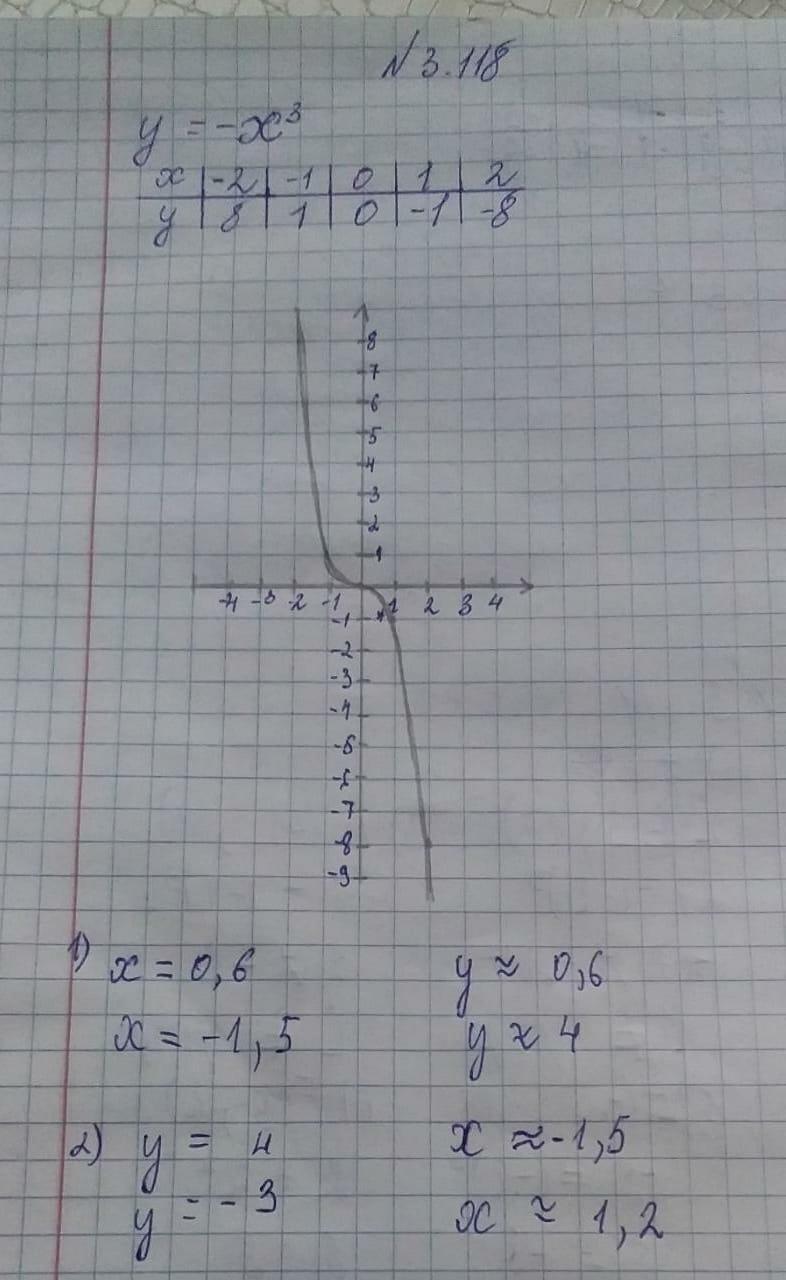 №3.118
y = -x³
x | -2 | -1 | 0 | 1 | 2
y | 8 | 1 | 0 | -1 | -8
8
7
6
5
4
3
2
1
-4 -3 -2 -1 1 2 3 4
-1
-2
-3
-4
-5
-6
-7
-8
-9
1) x = 0,6 y ≈ 0,6
x = -1,5 y ≈ 4
2) y = 4 x ≈ -1,5
y = -3 x ≈ 1,2